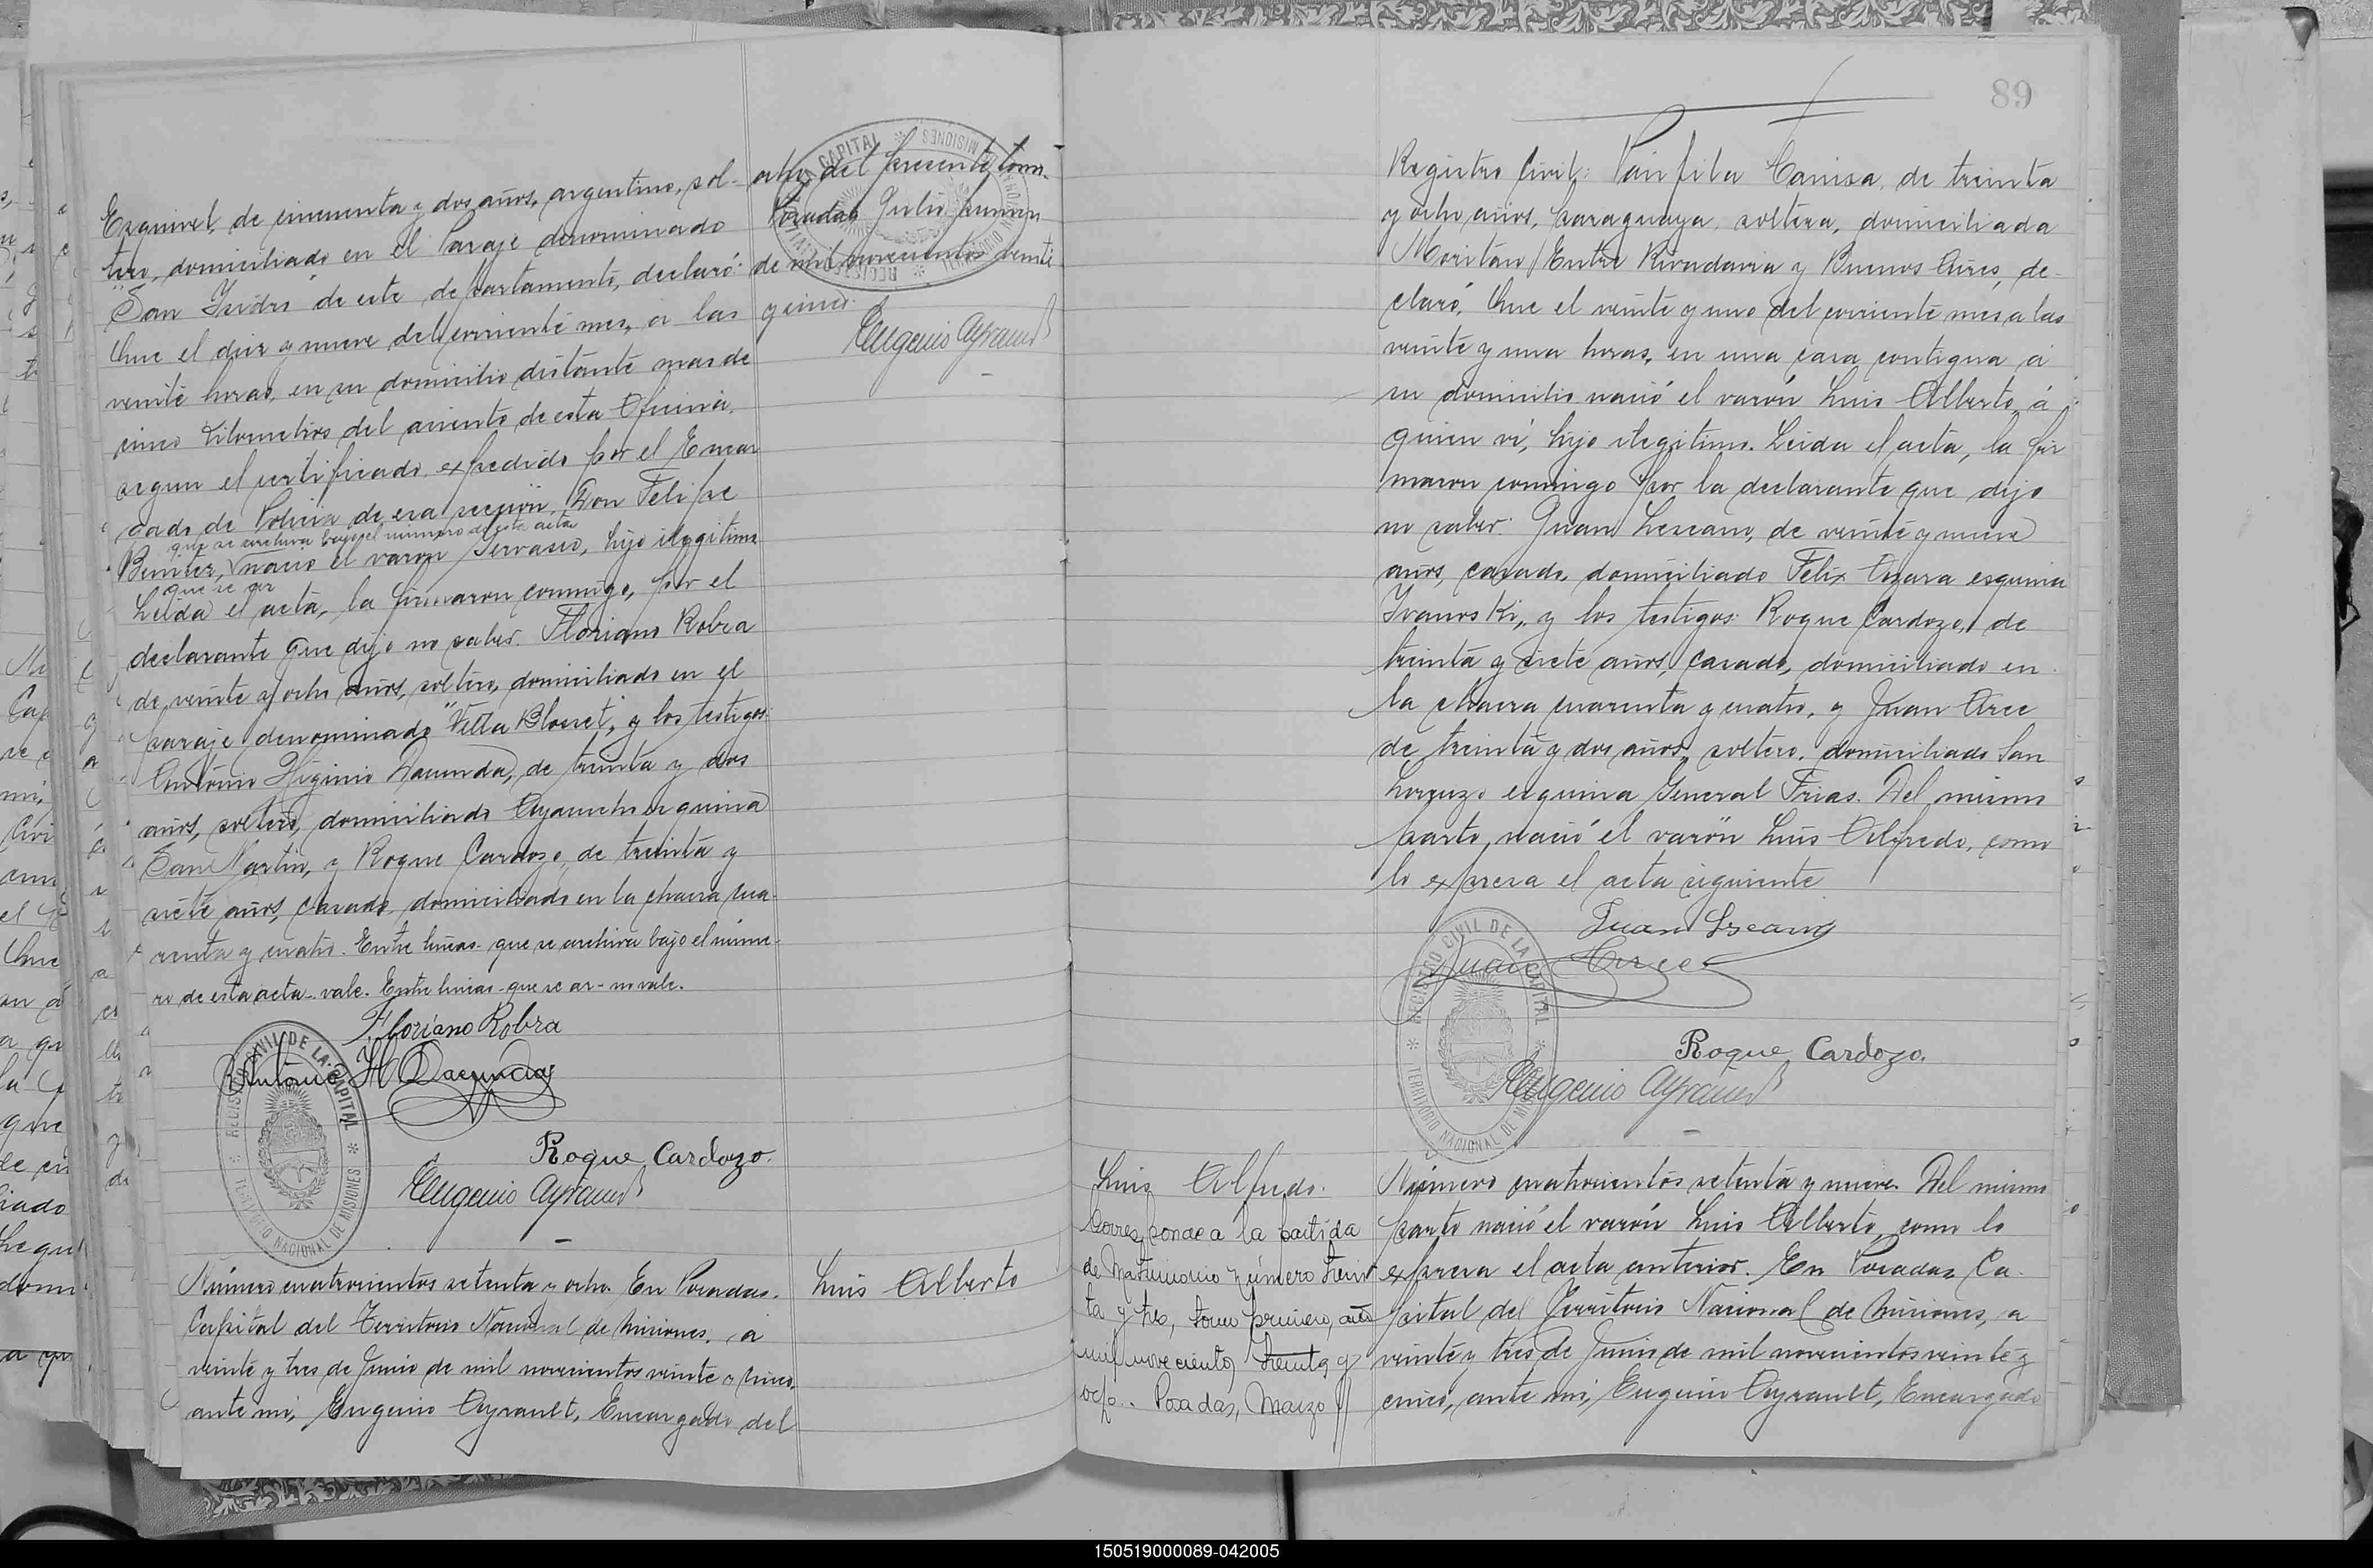 Esquivel, de cincuenta y dos años, argentino, sol-
tero, domiciliado en el Paraje denominado
"San Isidro" de este departamento, declaró:
Que el diez y nueve del corriente mes, a las
veinte horas, en su domicilio distante mas de
cinco kilometros del asiento de esta Oficina,
segun el certificado expedido por el Encar
gado de Policia de esa sección, Don Felipe
que se archiva bajo el número de esta acta
Benitez, nació el varon Gervasio, hijo ilegitimo
que se ar
Leida el acta, la firmaron conmigo, por el
declarante que dijo no saber. Floriano Robra
de veinte y ocho años, soltero, domiciliado en el
paraje denominado "Villa Blosset", y los testigos:
Antonio Higinio Dacunda, de treinta y dos
años, soltero, domiciliado Ayacucho esquina
San Martin, y Roque Cardozo, de treinta y
siete años, casado, domiciliado en la chacra cua-
renta y cuatro. Entre lineas - que se archiva bajo el núme-
ro de esta acta - vale. Entre lineas - que se ar - no vale.
Floriano Robra
Antonio H Dacunda
Roque Cardozo.
Eugenio Ayrault
REGISTRO CIVIL DE LA CAPITAL
TERRITORIO NACIONAL DE MISIONES
ocho del presente tomo.
Posadas Julio primero
de mil novecientos veinte
y cinco.
Eugenio Ayrault
CAPITAL
MISIONES
Número cuatrocientos setenta y ocho. En Posadas.
Capital del Territorio Nacional de Misiones, a
veinte y tres de Junio de mil novecientos veinte y cinco,
ante mi, Eugenio Ayrault, Encargado del
Luis Alberto
89
Registro Civil: Pánfila Canisa, de treinta
y ocho años, paraguaya, soltera, domiciliada
Moritán / Entre Rivadavia y Buenos Aires, de-
claró, Que el veinte y uno del corriente mes a las
veinte y una horas, en una casa contigua á
su domicilio nació el varón Luis Alberto, á
quien vi, hijo ilegitimo. Leida el acta, la fir
maron conmigo por la declarante que dijo
no saber: Juan Lezcano, de veinte y nueve
años, casado, domiciliado Felix Azara esquina
Ivanoski, y los testigos: Roque Cardozo, de
treinta y siete años, casado, domiciliado en
la chacra cuarenta y cuatro, y Juan Arce
de treinta y dos años, soltero, domiciliado San
Lorenzo esquina General Frias. Del mismo
parto, nació el varón Luis Alfredo, como
lo expresa el acta siguiente
Juan Lezcano
Juan Arce
Roque Cardozo.
Eugenio Ayrault
REGISTRO CIVIL DE LA CAPITAL
TERRITORIO NACIONAL DE MISIONES
Luis Alfredo.
Corresponde a la partida
de Matrimonio número trein
ta y tres, tomo primero, año
mil novecientos treinta y
ocho. Posadas, Marzo
Número cuatrocientos setenta y nueve. Del mismo
parto nació el varón Luis Alberto, como lo
expresa el acta anterior. En Posadas Ca-
pital del Territorio Nacional de Misiones, a
veinte y tres de Junio de mil novecientos veinte y
cinco, ante mi, Eugenio Ayrault, Encargado
150519000089-042005